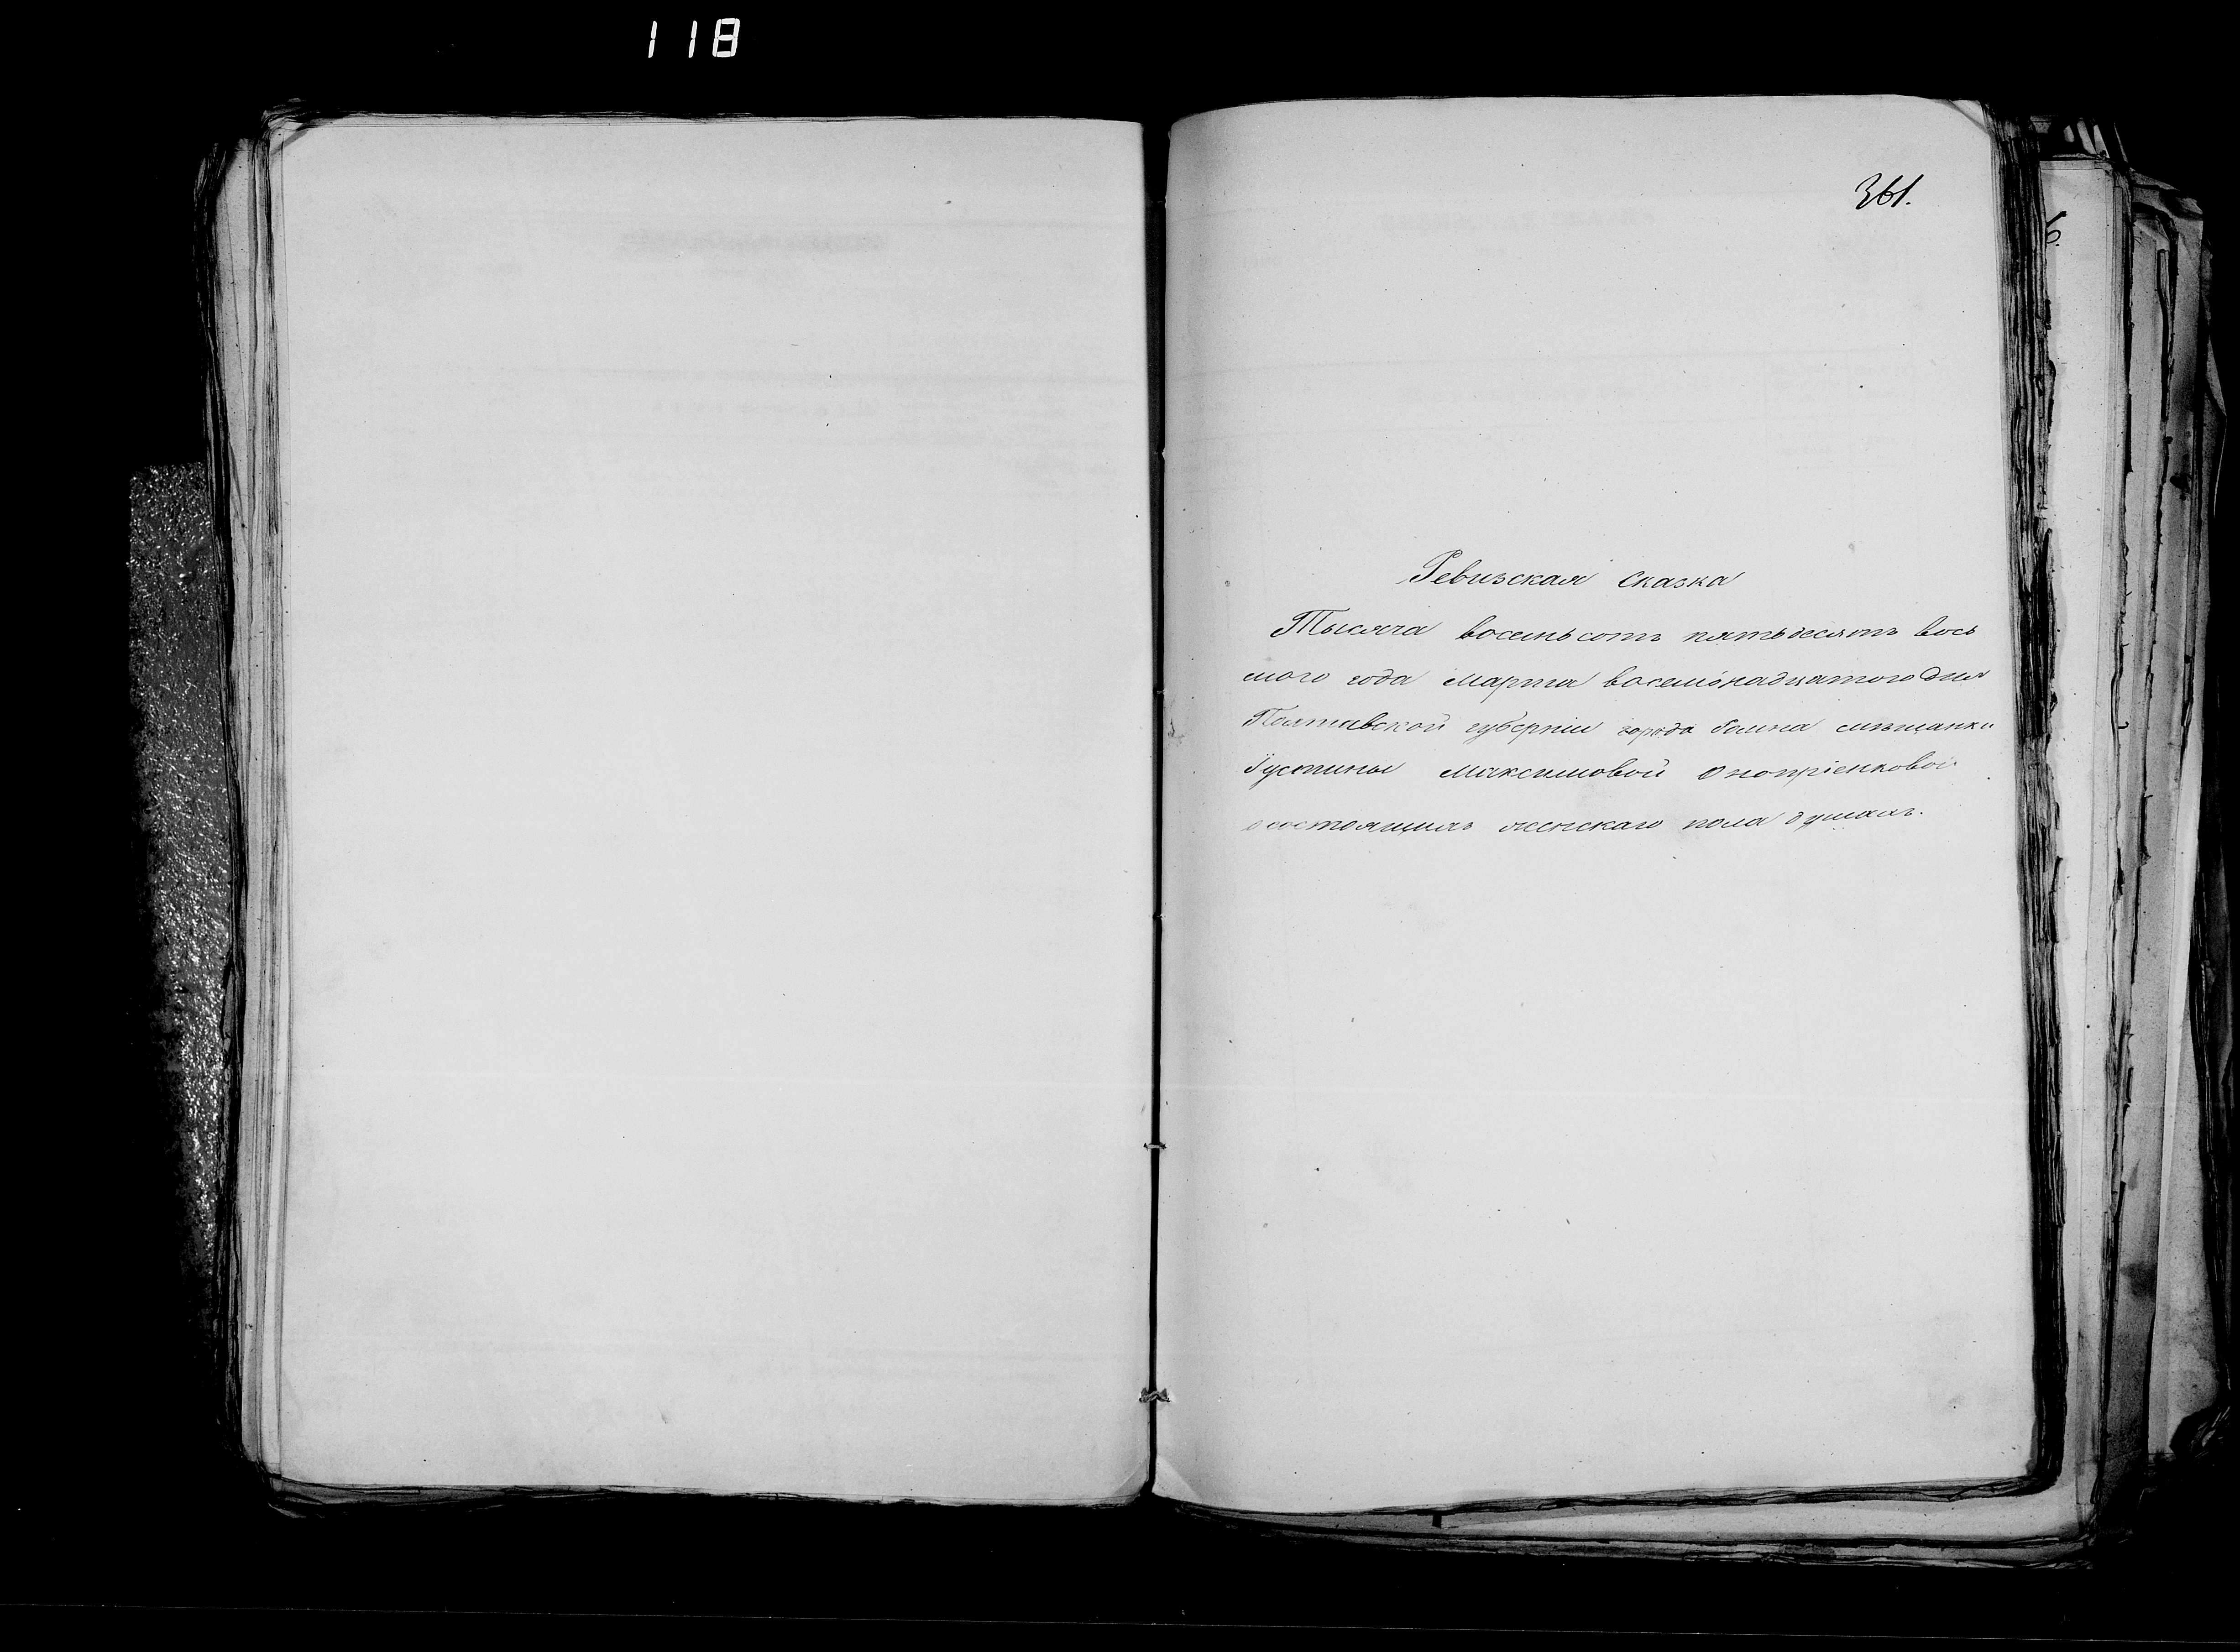 118
361.
6.
Ревизская Сказка
Тысяча восемьсотъ пятьдесятъ вось
мого года Марта восемьнадцатого дня
Полтавской губерніи города мѣщанки
Іустины Максимовой Онопріенковой
о состоящихъ женскаго пола душахъ.